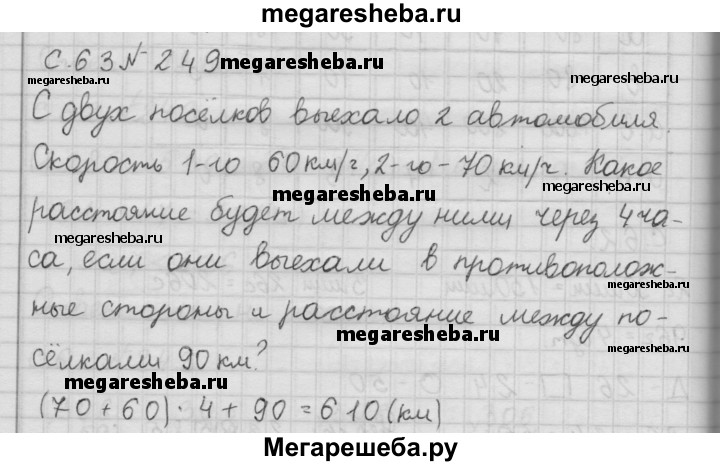 megaresheba.ru
С. 63 № 249 megaresheba.ru
megaresheba.ru megaresheba.ru
С двух посёлков выехало 2 автомобиля.
Скорость 1-го 60 км/ч, 2-го - 70 км/ч. Какое
megaresheba.ru megaresheba.ru
расстояние будет между ними через 4 ча-
megaresheba.ru
са, если они выехали в противополож-
ные стороны и расстояние между по-
megaresheba.ru
сёлками 90 км?
megaresheba.ru
(70 + 60) · 4 + 90 = 610 (км)
Мегарешеба.ру